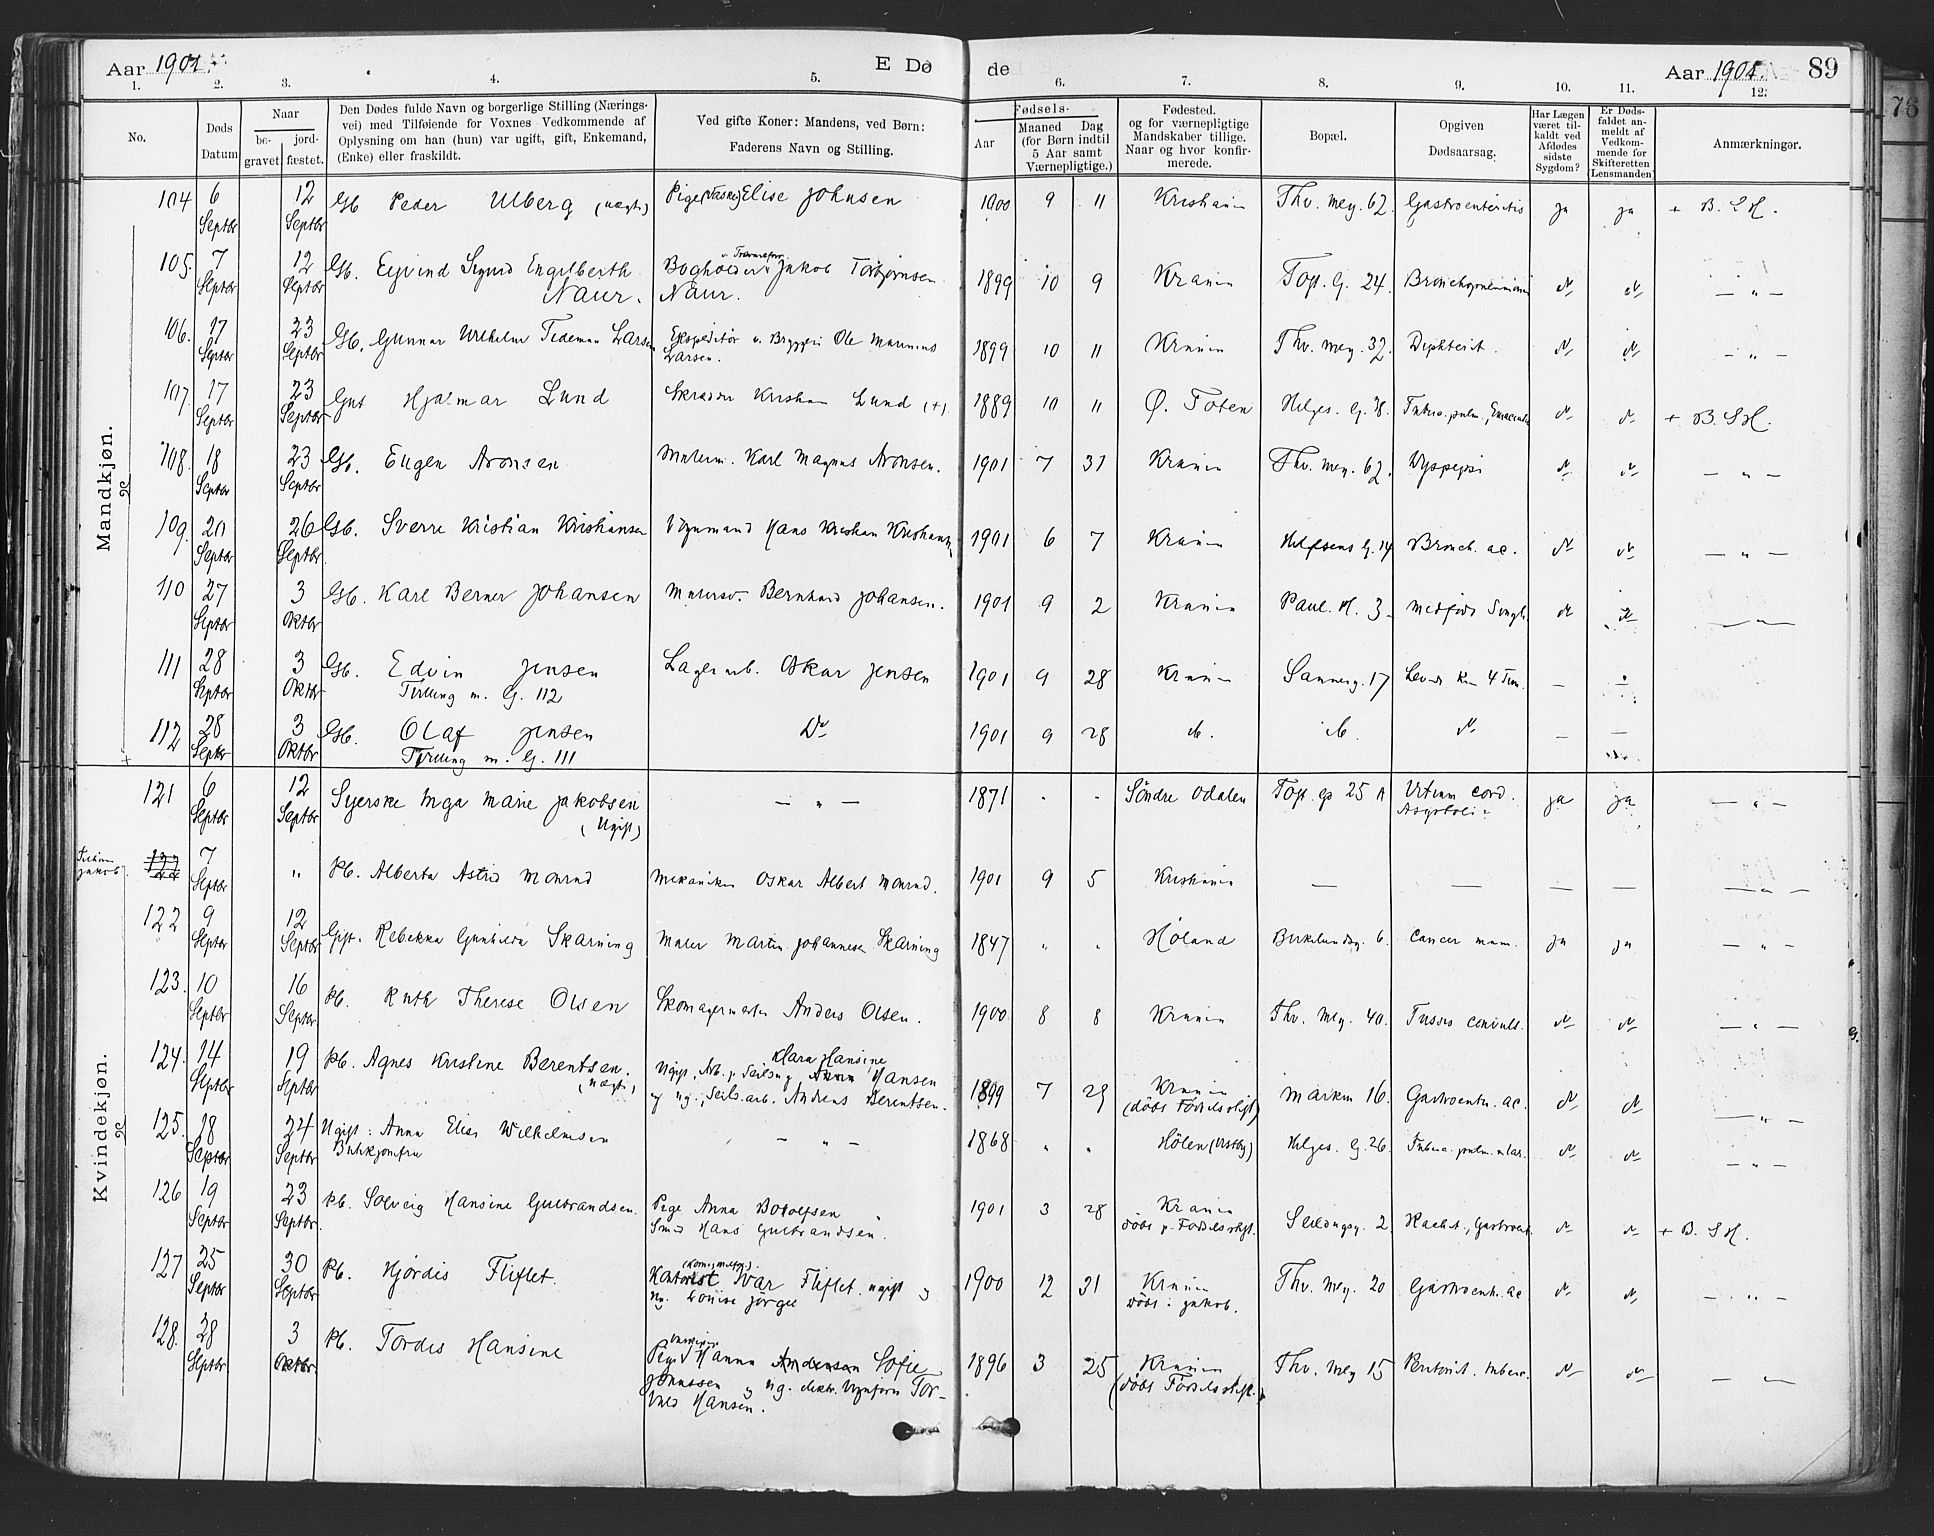 Aar 1901. E Dø de Aar 1901. 89
1. 2. 3. 4. 5. 6. 7. 8. 9. 10. 11. 12.
No.
Døds Datum
Naar
be- gravet
jord- fæstet.
Den Dødes fulde Navn og borgerlige Stilling (Nærings-
vei) med Tilføiende for Voxnes Vedkommende af
Oplysning om han (hun) var ugift, gift, Enkemand,
(Enke) eller fraskilt.
Ved gifte Koner: Mandens, ved Børn:
Faderens Navn og Stilling.
Fødsels-
Aar
Maaned Dag
(for Børn indtil
5 Aar samt
Værnepligtige.)
Fødested.
og for værnepligtige
Mandskaber tillige.
Naar og hvor konfir-
merede.
Bopæl.
Opgiven
Dødsaarsag.
Har Lægen
været til-
kaldt ved
Afdødes
sidste
Sygdom?
Er Døds-
faldet an-
meldt af
Vedkom-
mende for
Skifteretten
(Lensmanden)
Anmærkninger.
Mandkjøn.
104 6 Septbr 12 Septbr Gb. Peder Ulberg (uægte) Pige Elise Johnsen 1900 9 11 Kristiania Thv. mey. 62. Gastroenteritis ja ja + B. S H.
105. 7 Septbr 12 Septbr Gb. Eyvind Sigurd Engelberth Naur. Bogholder Jakob Torbjørnsen Naur. 1899 10 9 Krania Toft. G. 24. Bronchopneumoni do do — " —
106. 17 Septbr 23 Septbr Gb. Gunnar Vilhelm Tideman Larsen Expeditør v. Bryggeri Ole Marinius Larsen. 1899 10 11 Krania Thv. mey. 32. Diphterit. do do — " —
107 17 Septbr 23 Septbr Gut Hjalmar Lund Skrædder Kristian Lund (+). 1889 10 11 Ø. Toten Helges. G. 38. Tuberc. pulm., do do + B. S H.
108. 18 Septbr 23 Septbr Gb. Eugen Aronsen Malerm. Karl Magnus Aronsen. 1901 7 31 Krania Thv. mey. 62. Dyspepsi do do — " —
109. 20 Septbr 26 Septbr. Gb. Sverre Kristian Kristiansen Vognmand Hans Kristian Kristiansen 1901 6 7 Krania G. 14 Bronch. ac. do do — " —
110 27 Septbr 3 Oktbr Gb. Karl Berner Johansen Malersv. Bernhard Johansen. 1901 9 2 Krania Paul. Pl. 3. Medfødt do do — " —
111 28 Septbr 3 Oktbr Gb. Edvin Jensen Tvilling m. G. 112 Lagerarb. Oskar Jensen 1901 9 28 Krania Sannerg. 17 Leved. kun 4 Tim. — —
112 28 Septbr 3 Oktbr Gb. Olaf Jensen Tvilling m. G. 111 Do 1901 9 28 do. do. do — —
Kvindekjøn.
121 6 Septbr 12 Septbr Syerske Inga Marie Jakobsen (Ugift) — " — 1871 . . Søndre Odalen Toft. g 25 A Vitium cord. Asystoli ja ja — " —
Jakob 7 Septbr " Pb. Alberta Astrid Monrad Mekaniker Oskar Albert Monrad. 1901 9 5 Kristiania — — — — — " —
122 9 Septbr 12 Septbr Gift. Rebekka Gunhilda Skarning Maler Martin Johannesen Skarning 1847 " . Høland Birkelundsg. 6. Cancer mam. ja ja — " —
123. 10 Septbr 16 Septbr Pb. Ruth Therese Olsen Skomagermester Anders Olsen. 1900 8 8 Krania Thv. Mey. 40. Tussis convuls. do do — " —
124. 14 Septbr 19 Septbr Pb. Agnes Kristine Berentsen. (uægte) Ugift, Arb. p. Seildug Klara Hansine Hansen og ug., Seild.arb. Andreas Berentsen. 1899 7 29 Krania (døbt Fødselsstift.) Markvn 16. Gastroenter. ac. do do — " —
125. 18 Septbr 24 Septbr Ugift: Anna Elise Wilhelmsen Butikjomfru — " — 1868 " " Hölen (Vestby) Helges. G. 26. Tuberc. pulm. & lar. do do — " —
126 19 Septbr 23 Septbr. Pb. Solveig Hansine Gulbrandsen. Pige Anna Botolfsen Smed Hans Gulbrandsen. 1901 3 28 Krania døbt p. Fødselsstift. Seildugsg. 2 Rachit., Gastroent. do do + B. S H.
127 25 Septbr 30 Septbr Pb. Hjørdis Fliflet. Kontorist Ivar Fliflet. ugift og Louise Jørgee 1900 12 31 Krania døbt i Jakob. Thv. Mey. 20 Gastroent. ac do do — " —
128. 28 Septbr 3 Oktbr. Pb. Tordis Hansine Pige Hanna Andersen Sofie Jonassen og ug. elektr. Vognfører Tor- vald Hansen. 1896 3 25 Krania (døbt Fødselsstift.) Thv. Mey 15 Peritonit. tuberc. do do — " —